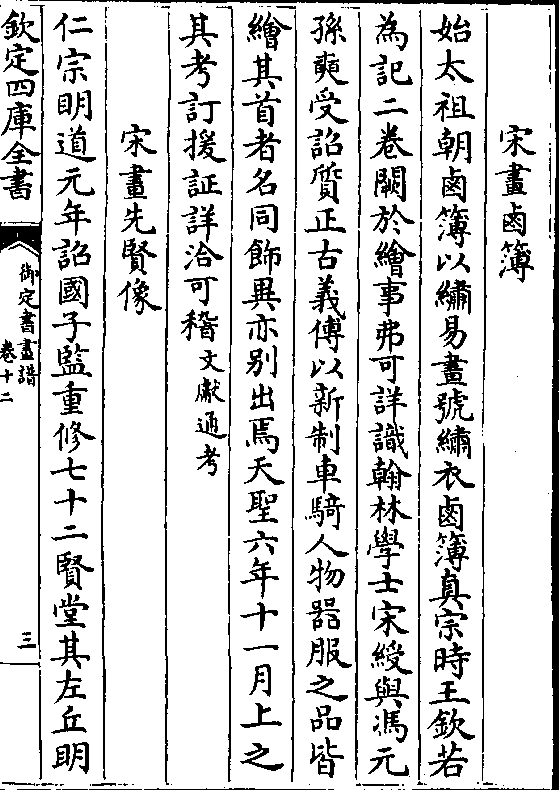 宋畫鹵簿
始太祖朝鹵簿以繡易畫號繡衣鹵簿真宗時王欽若
為記二卷闕於繪事弗可詳識翰林學士宋綬與馮元
孫奭受詔質正古義傅以新制車騎人物器服之品皆
繪其首者名同飾異亦别出焉天聖六年十一月上之
其考訂援証詳洽可稽文獻通考
宋畫先賢像
仁宗明道元年詔國子監重修七十二賢堂其左丘明
欽定四庫全書
御定書畫譜
卷十二
三